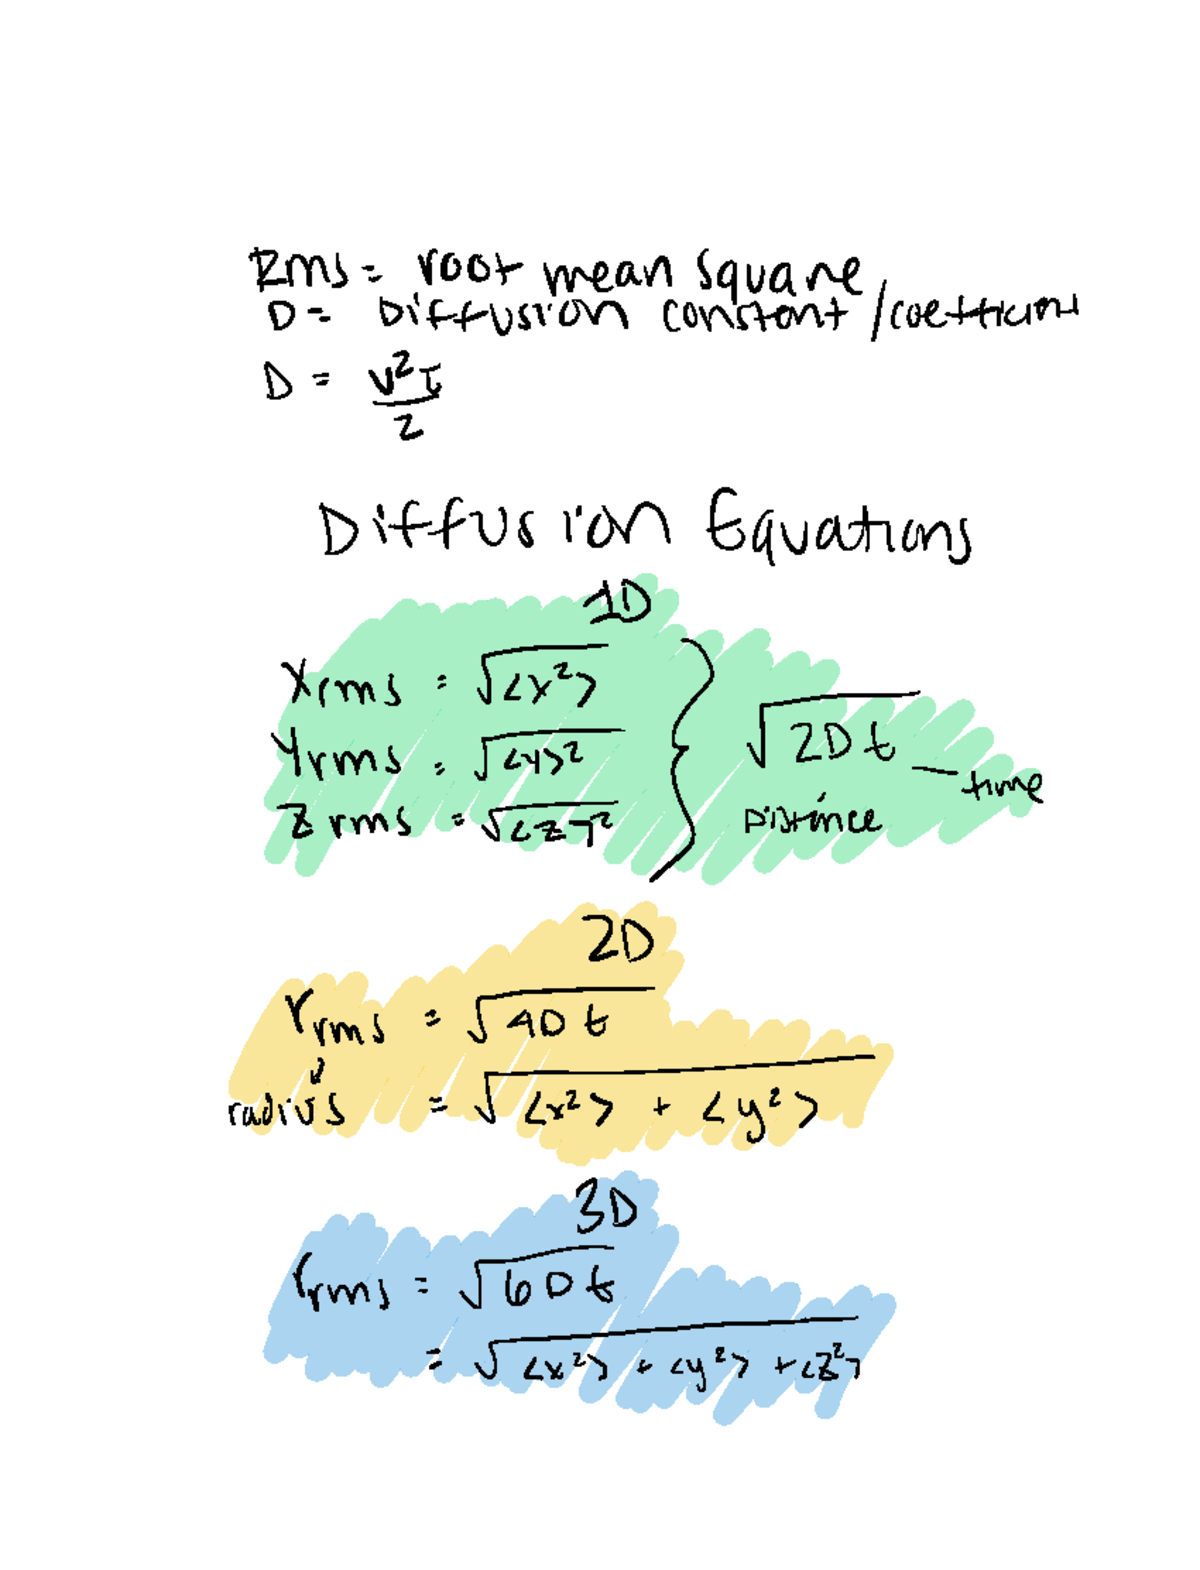 Rms = root mean square
D = Diffusion constant / coefficient
D = v²τ/2
Diffusion Equations
1D
Xrms = √<x²>
Yrms = √<y>²
Zrms = √<z>²
} √2Dt
time
Distance
2D
rrms = √4Dt
radius = √<x²> + <y²>
3D
rrms = √6Dt
= √<x²> + <y²> + <z²>